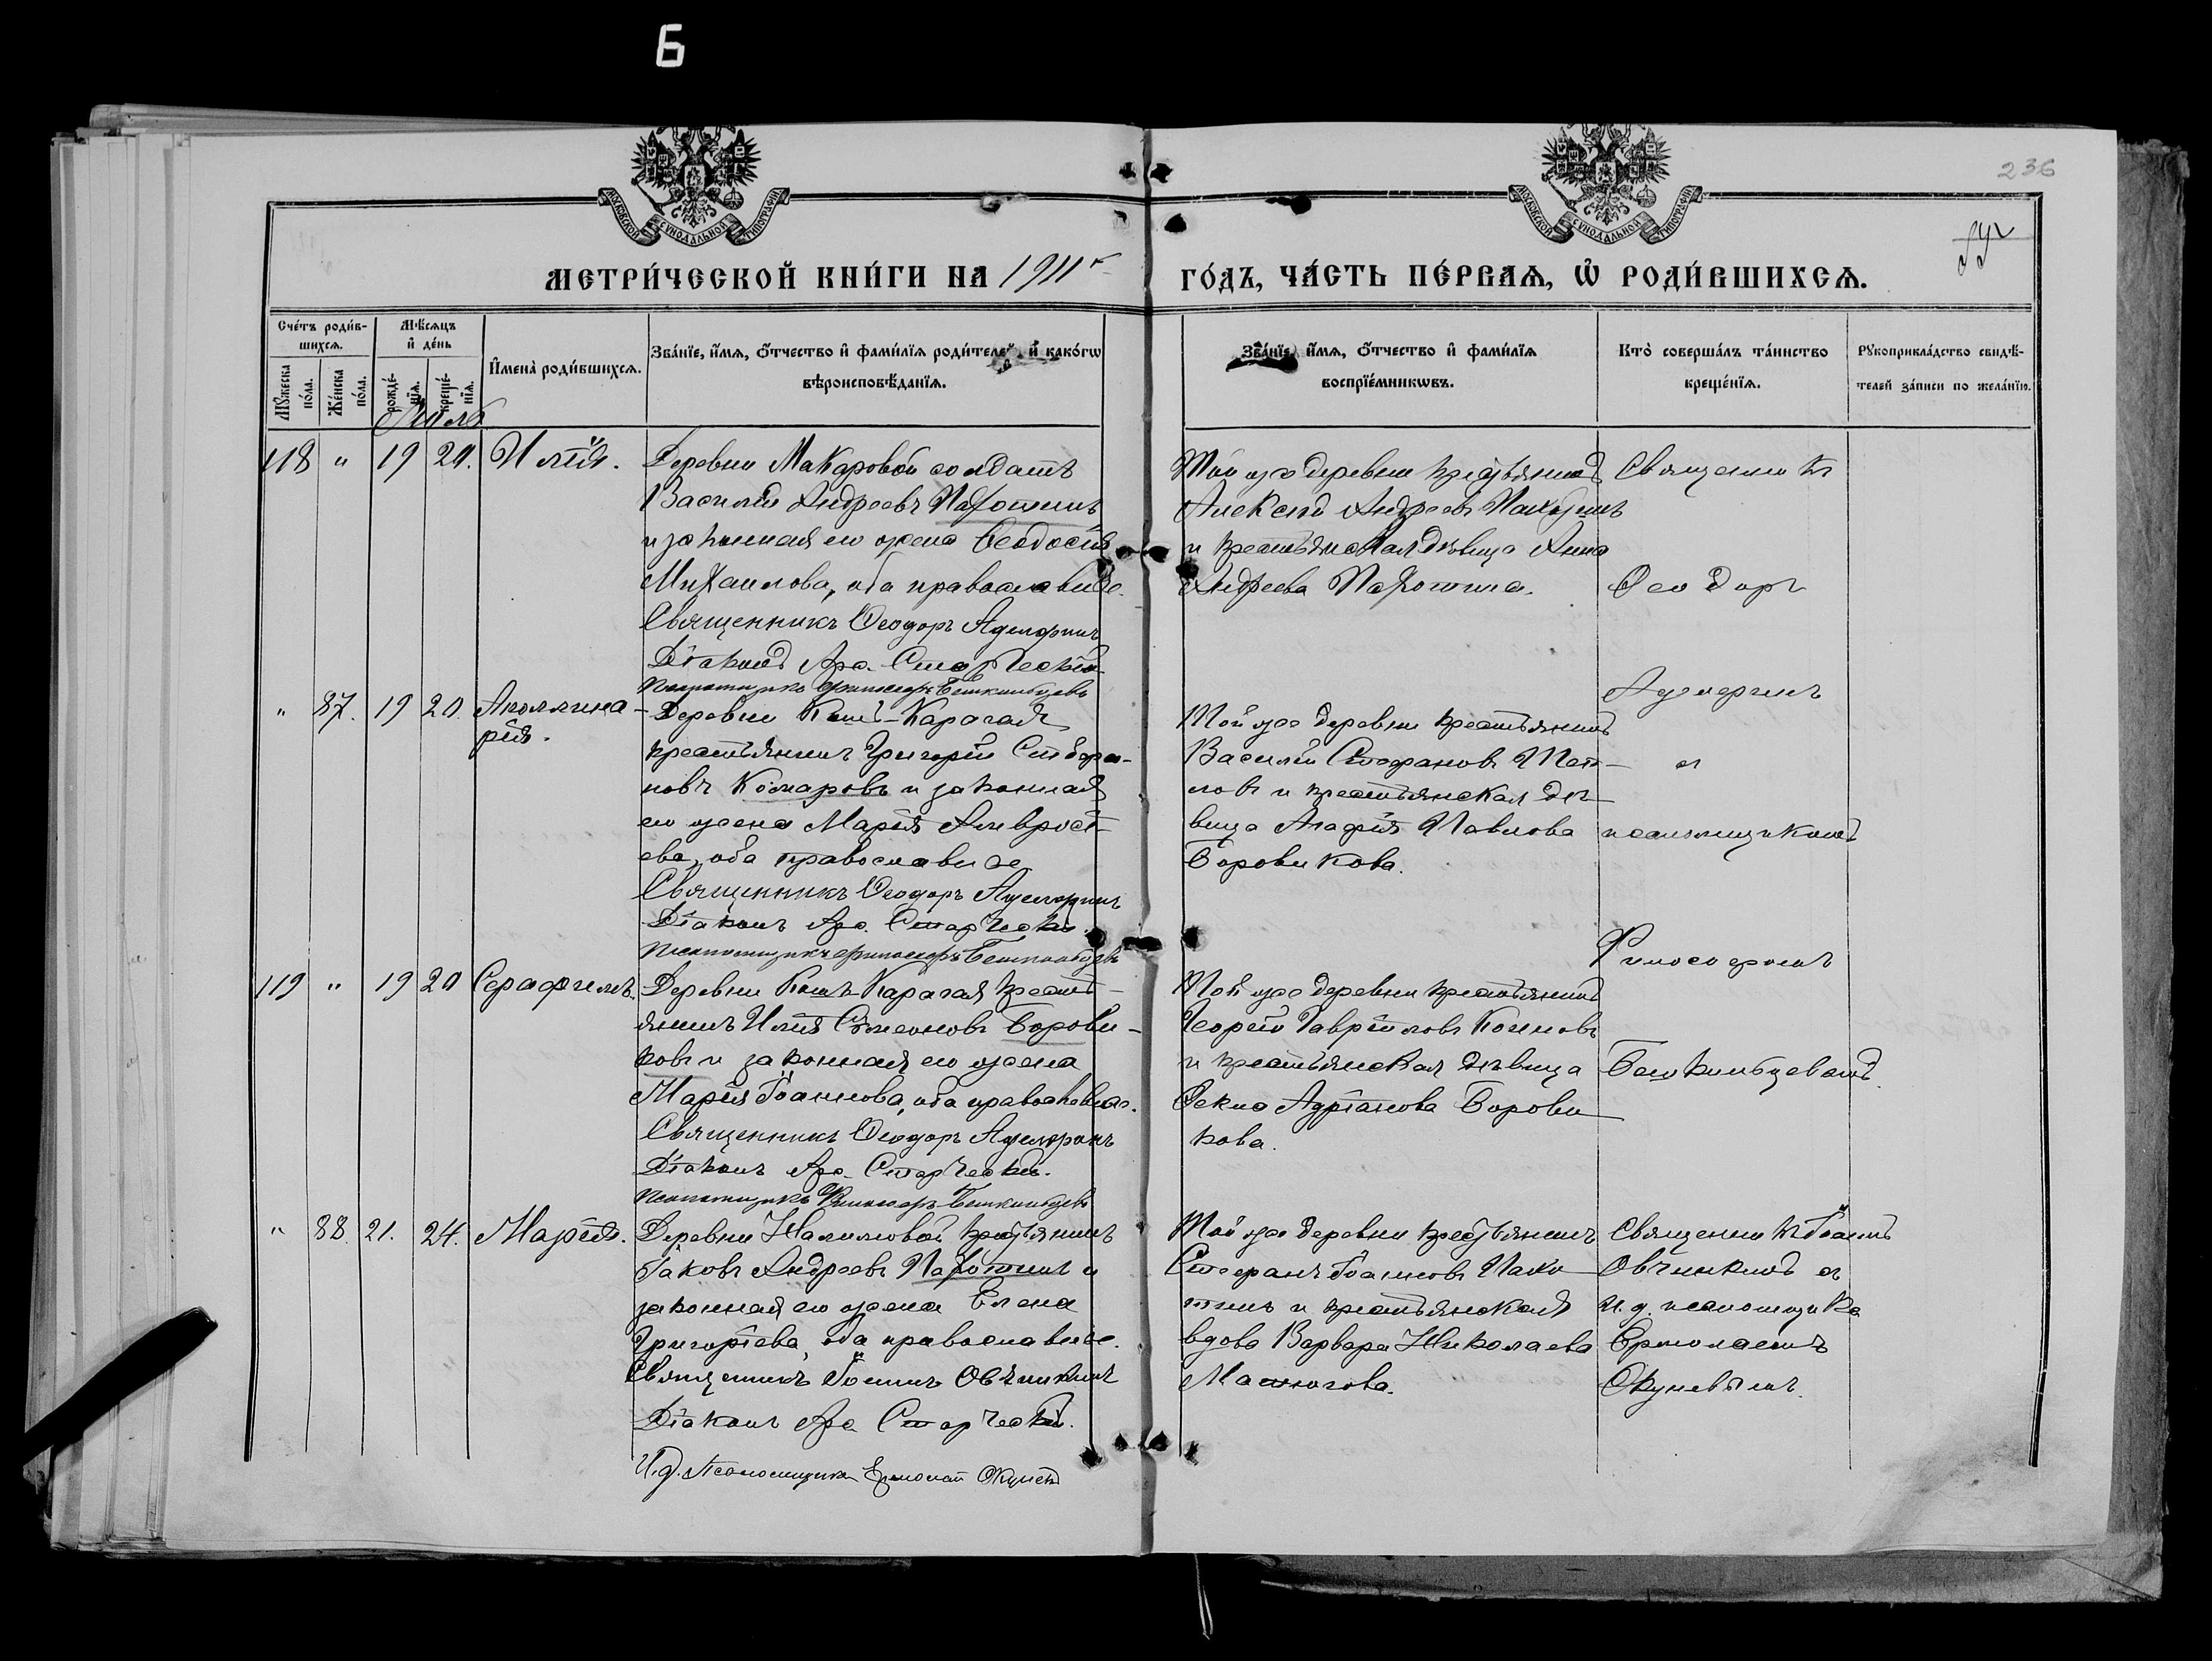 Б
236
МОСКОВСКОЙ СУНОДАЛЬНОЙ ТИПОГРАФІИ
МОСКОВСКОЙ СУНОДАЛЬНОЙ ТИПОГРАФІИ
МЕТРИ́ЧЕСКОЙ КНИ́ГИ НА 1911 г
ГО́ДЪ, ЧА́СТЬ ПЕ́РВАѦ, Ѡ РОДИ́ВШИХСѦ.
Сче́тъ роди́в-
шихсѧ.
Мꙋ́жеска по́ла.
Же́нска по́ла.
Мѣ́сѧцъ и де́нь
рожде́-нїѧ.
креще́-нїѧ.
И҆мена̀ роди́вшихсѧ.
Зва́нїе, и҆́мѧ, о҆́тчество и҆ фами́лїѧ роди́телей, и҆ како́гѡ
вѣроисповѣ́данїѧ.
Зва́нїе, и҆́мѧ, о҆́тчество и҆ фами́лїѧ
воспрїе́мникѡвъ.
Кто̀ соверша́лъ та́инство
креще́нїѧ.
Рꙋкоприкла́дство свидѣ́-
телей за́писи по жела́нїю.
Іюль
118 " 19 20. Илія.
Деревни Макаровой солдатъ
Василій Андреевъ Пахотинъ
и законная его жена Ѳеодосія
Михаилова, оба православные.
Священникъ Ѳеодоръ Аделфинъ
Діаконъ Арс. Старческій
Псаломщикъ Филосоѳъ Бешкильцевъ
Той же деревни крестьянинъ
Андреевъ Пахотинъ
и крестьянская дѣвица Анна
Андреева Пахотина.
Священникъ
Ѳеодоръ
Аделфинъ
" 87. 19 20. Аполлина-
рія.
Деревни Кошъ-Карагая
крестьянинъ Григорій Стефа-
новъ Комаровъ и законная
его жена Марія Амвросі-
ева, оба православные
Священникъ Ѳеодоръ Аделфинъ
Діаконъ Арс. Старческій.
Псаломщикъ Филосоѳъ Бешкильцевъ
Той же деревни крестьянинъ
Василій Стефановъ
и крестьянская дѣ-
вица Агафія Павлова
Боровикова.
съ
псаломщикомъ
Филосоѳомъ
119 " 19 20 Серафимъ.
Деревни Кошъ-Карагая кресть-
янинъ Илія Симеоновъ Борови-
ковъ и законная его жена
Марія Іоаннова, оба православные.
Священникъ Ѳеодоръ Аделфинъ
Діаконъ Арс. Старческій.
Псаломщикъ Филосоѳъ Бешкильцевъ
Той же деревни крестьянинъ
Георгій Гавріиловъ
и крестьянская дѣвица
Ѳекла Адріанова Борови
кова.
Бешкильцевымъ.
" 88. 21. 24. Марія.
Деревни Налимовой крестьянинъ
Іаковъ Андреевъ Пахотинъ и
законная его жена Елена
Григоріева, оба православные.
Священникъ Іоаннъ Овчинкинъ
Діаконъ Арс. Старческій.
И.д. Псаломщика Ермолай Окуневъ
Той же деревни крестьянинъ
Стефанъ Іоанновъ Пахо
тинъ и крестьянская
вдова Варвара Николаева
Матюгова.
Священникъ Іоаннъ
Овчинкинъ съ
и.д. псаломщика
Ермолаемъ
Окуневымъ.